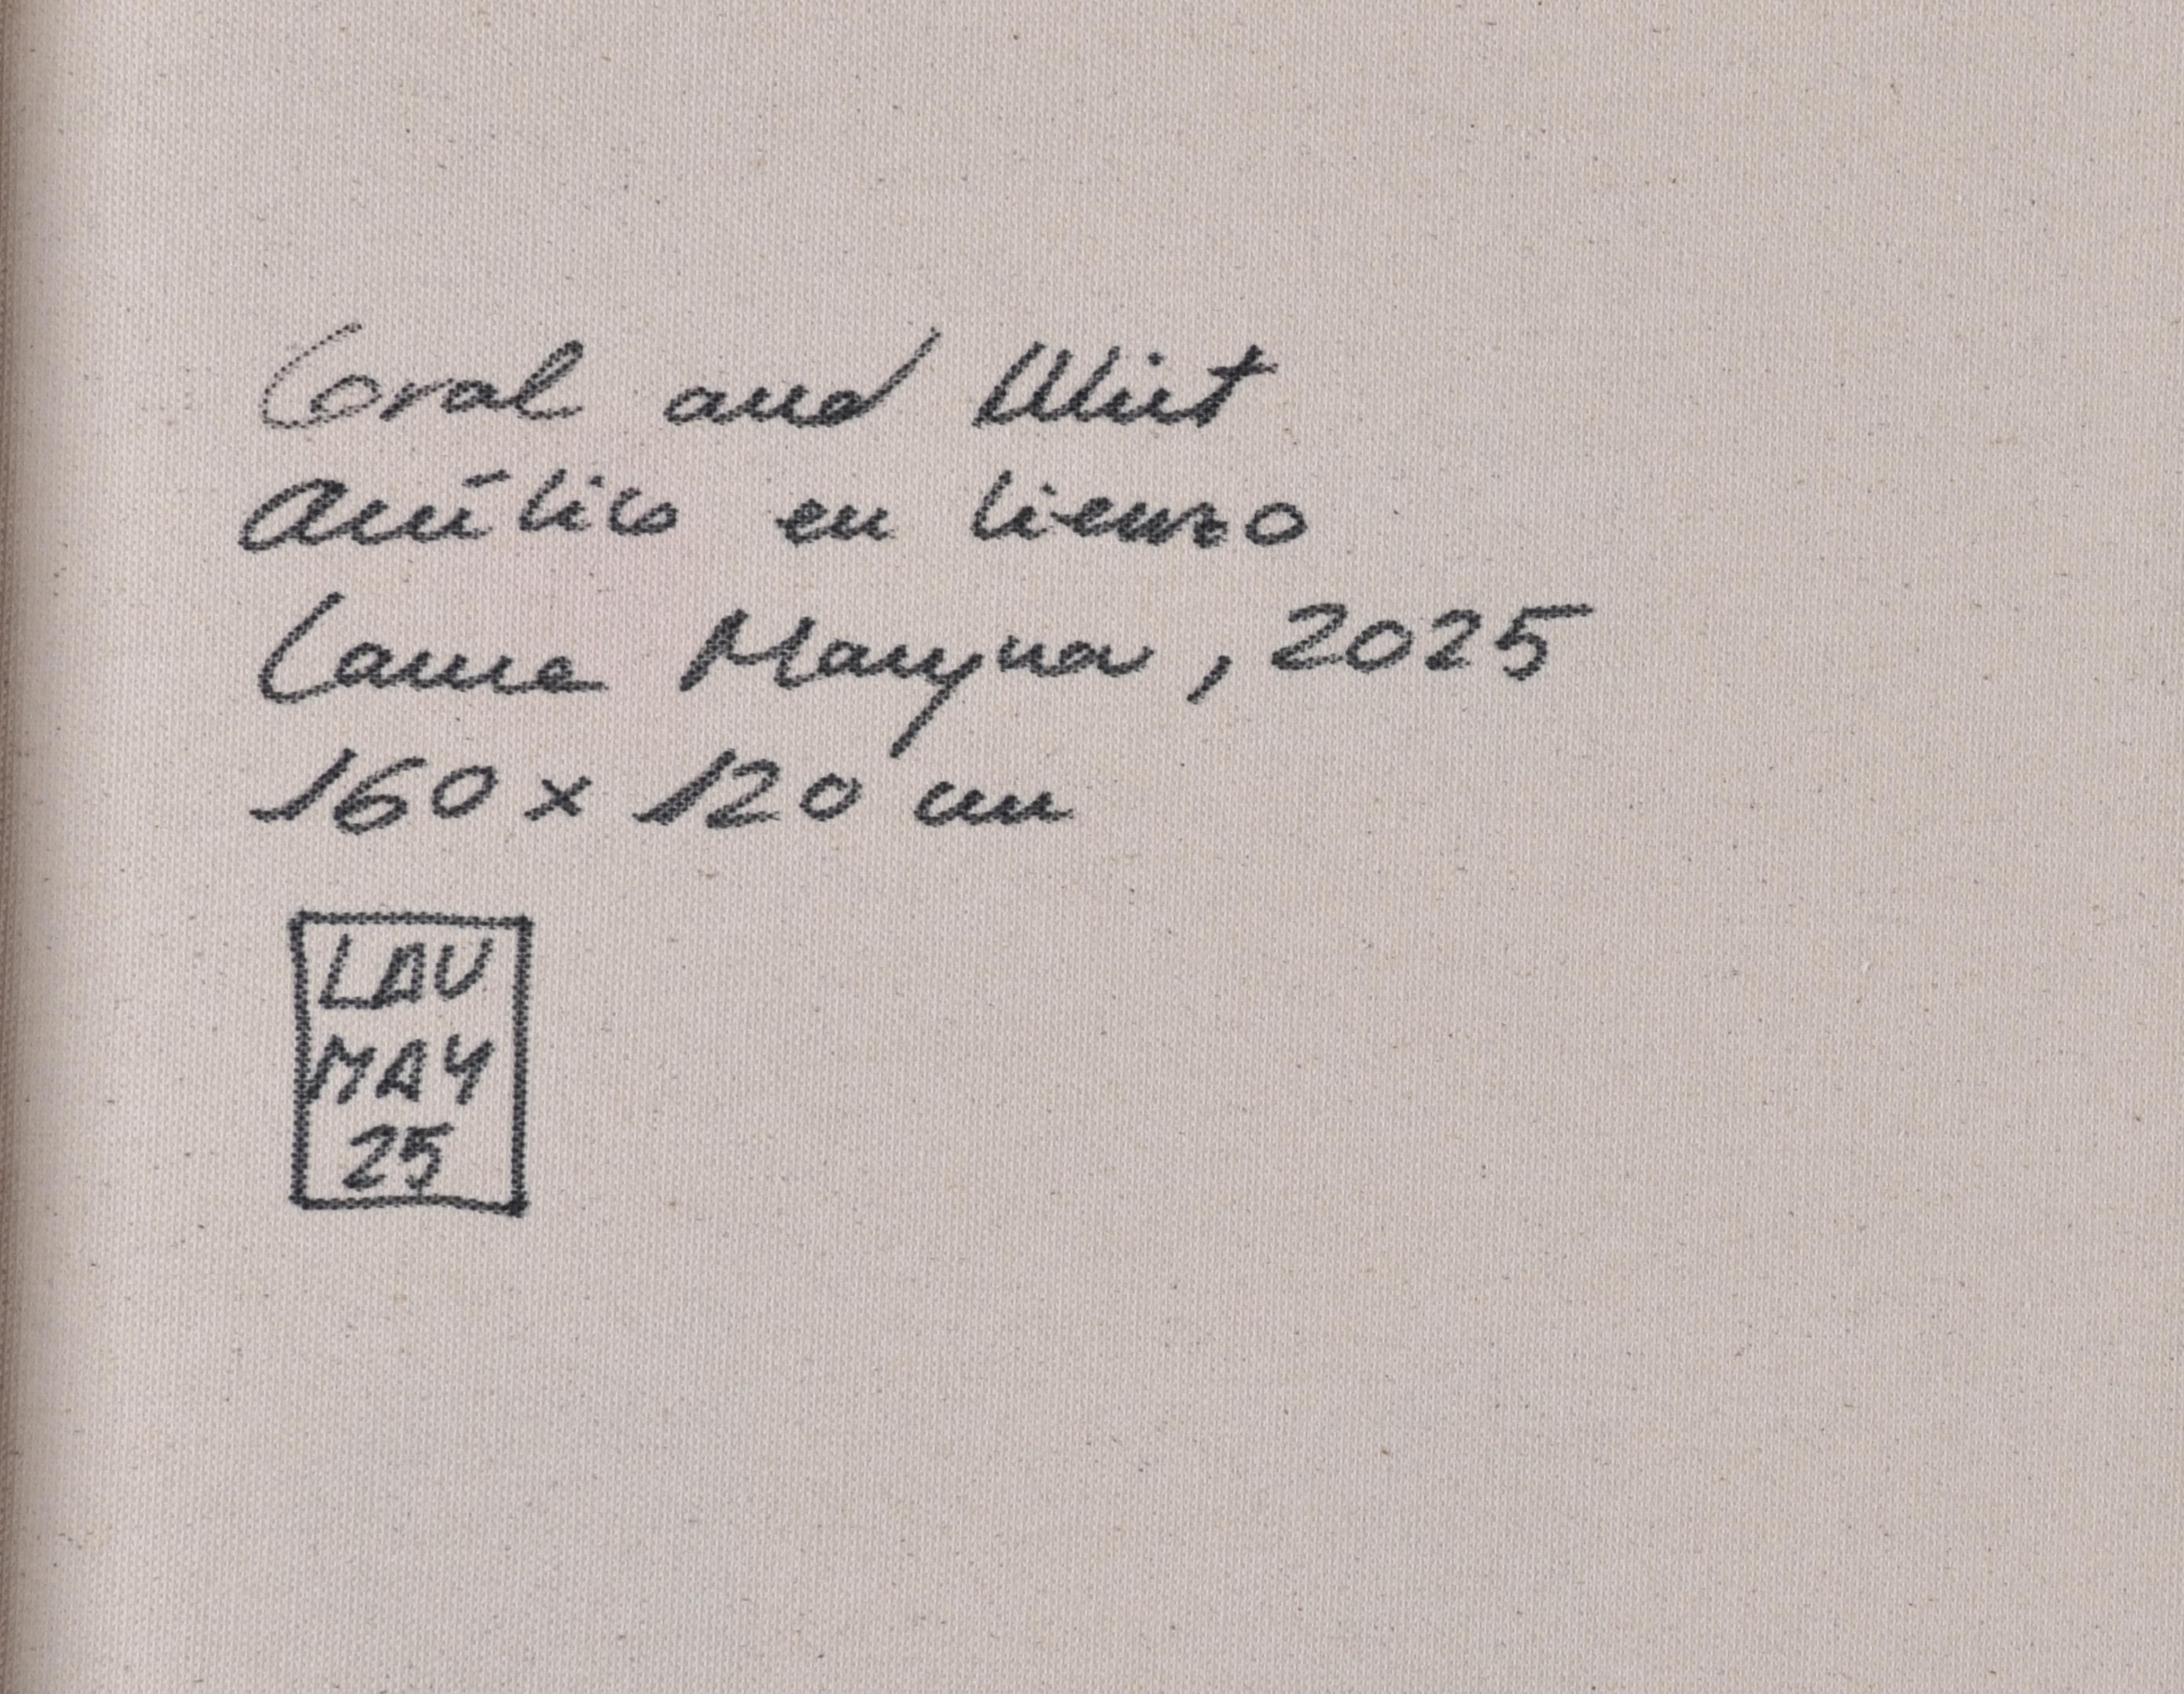 Coral and Mint
Acrílico en lienzo
Laura Mayna, 2025
160 x 120 cm
LAU
MAY
25